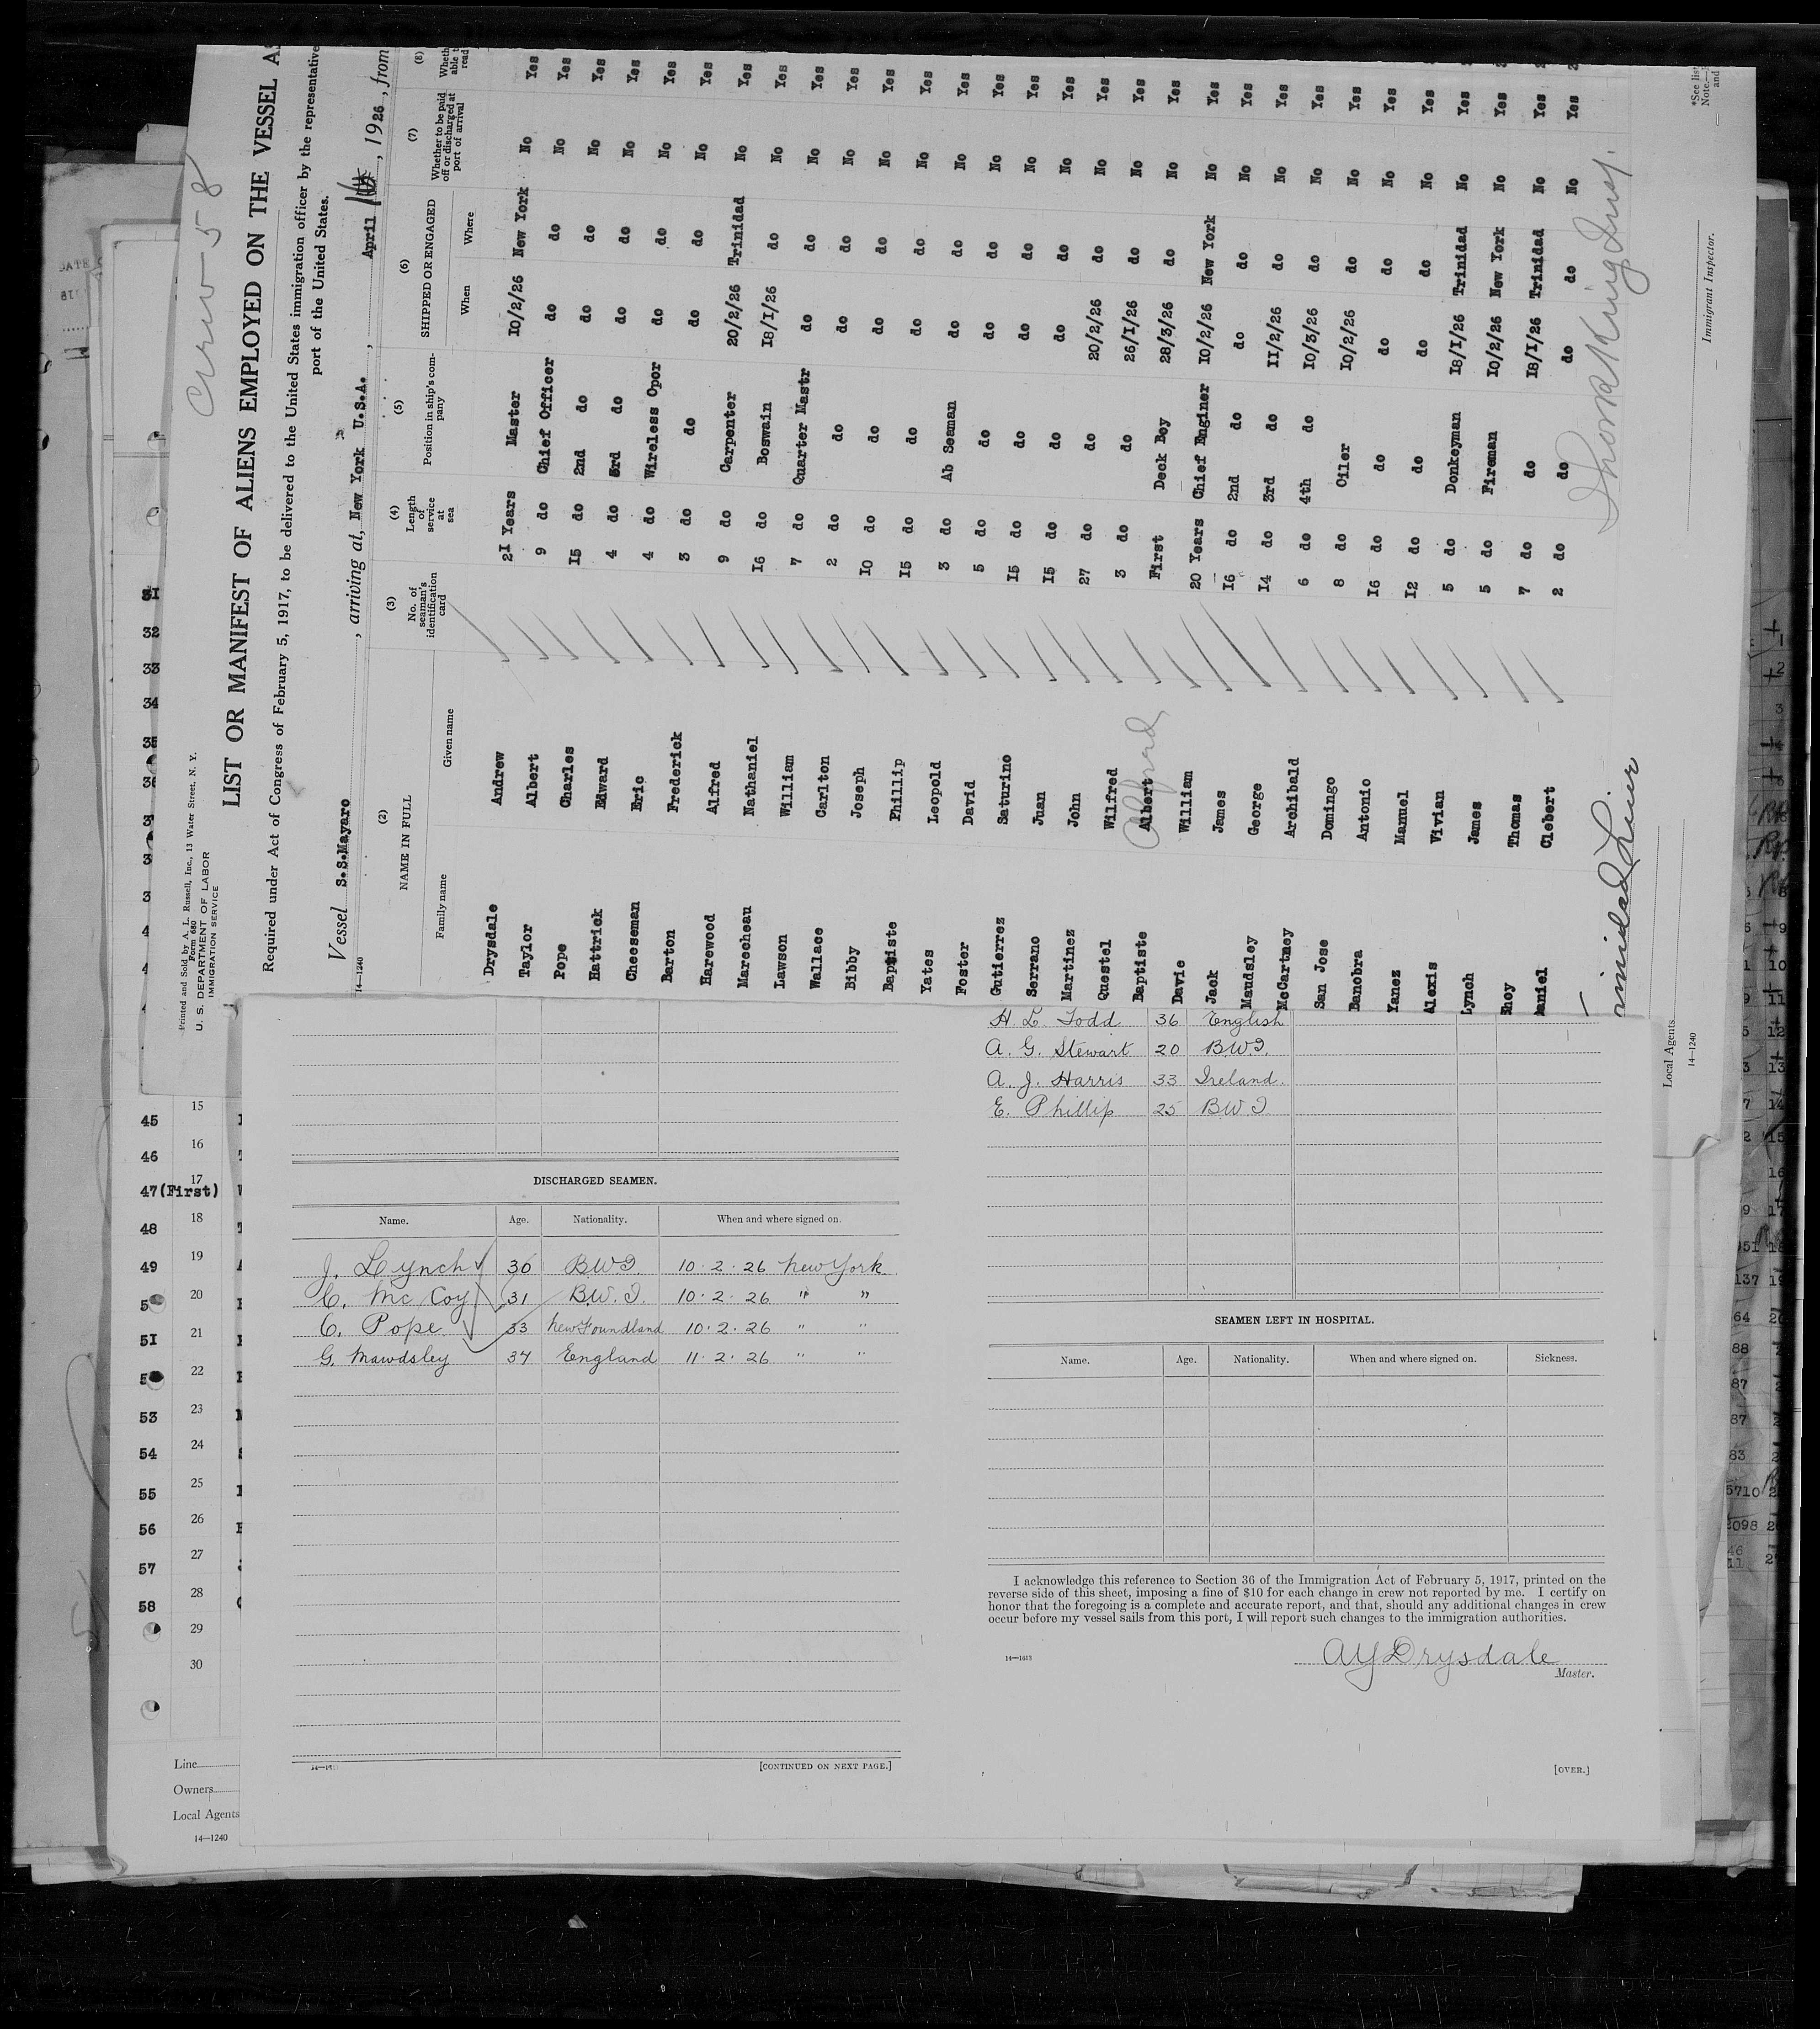 Crew - 58
Printed and Sold by A. L. Russell, Inc., 13 Water Street, N. Y.
Form 680
U. S. DEPARTMENT OF LABOR
IMMIGRATION SERVICE
LIST OR MANIFEST OF ALIENS EMPLOYED ON THE VESSEL AS
Required under Act of Congress of February 5, 1917, to be delivered to the United States immigration officer by the representative
port of the United States.
Vessel S.S.Mayaro, arriving at, New York U.S.A., April, 1926, from
14—1240
(2) NAME IN FULL
Family name Given name
(3) No. of seaman's identification card
(4) Length of service at sea
(5) Position in ship's company
(6) SHIPPED OR ENGAGED
When Where
(7) Whether to be paid off or discharged at port of arrival
(8)
Drysdale Andrew 21 Years Master 10/2/26 New York No Yes
Taylor Albert 9 do Chief Officer do do No Yes
Pope Charles 15 do 2nd do do do No Yes
Hattrick Edward 4 do 3rd do do do No Yes
Cheeseman Eric 4 do Wireless Opor do do No Yes
Barton Frederick 3 do do do do No Yes
Harewood Alfred 9 do Carpenter 20/2/26 Trinidad No Yes
Marecheau Nathaniel 16 do Boswain 18/1/26 do No Yes
Lawson William 7 do Quarter Mastr do do No Yes
Wallace Carlton 2 do do do do No Yes
Bibby Joseph 10 do do do do No Yes
Baptiste Phillip 15 do do do do No Yes
Yates Leopold 3 do Ab Seaman do do No Yes
Foster David 5 do do do do No Yes
Gutierrez Saturino 15 do do do do No Yes
Serrano Juan 15 do do do do No Yes
Martinez John 27 do do 20/2/26 do No Yes
Questel Wilfred 3 do do 26/1/26 do No Yes
Baptiste Albert Alfred First Deck Boy 28/3/26 do No Yes
Davie William 20 Years Chief Enginer 10/2/26 New York No Yes
Jack James 16 do 2nd do do do No Yes
Maudsley George 14 do 3rd do 11/2/26 do No Yes
McCartney Archibald 6 do 4th do 10/3/26 do No Yes
San Jose Domingo 8 do Oiler 10/2/26 do No Yes
Banobra Antonio 16 do do do do No Yes
Yanez Manuel 12 do do do do No Yes
Alexis Vivian 5 do Donkeyman 18/1/26 Trinidad No Yes
Lynch James 5 do Fireman 10/2/26 New York No Yes
Thomas 7 do do 18/1/26 Trinidad No Yes
Clebert 2 do do do do No Yes
Immigrant Inspector.
Local Agents
14—1240
*See list
32
33
34
35
45
46
47(First)
48
49
51
53
54
55
56
57
58
15
16
17
18
19
20
21
22
23
24
25
26
27
28
29
30
Line
Owners
Local Agents
14—1240
DISCHARGED SEAMEN.
Name. Age. Nationality. When and where signed on.
J. Lynch 30 BWI 10.2.26 New York
C. McCoy 31 B.W.I. 10.2.26 " "
C. Pope 33 Newfoundland 10.2.26 " "
G. Mawdsley 37 England 11.2.26 " "
[CONTINUED ON NEXT PAGE.]
H. L. Todd 36 English
A. G. Stewart 20 BWI.
A. J. Harris 33 Ireland.
E. Phillip 25 BWI
SEAMEN LEFT IN HOSPITAL.
Name. Age. Nationality. When and where signed on. Sickness.
I acknowledge this reference to Section 36 of the Immigration Act of February 5, 1917, printed on the
reverse side of this sheet, imposing a fine of $10 for each change in crew not reported by me. I certify on
honor that the foregoing is a complete and accurate report, and that, should any additional changes in crew
occur before my vessel sails from this port, I will report such changes to the immigration authorities.
14—1613
AYDrysdale
Master.
[OVER.]